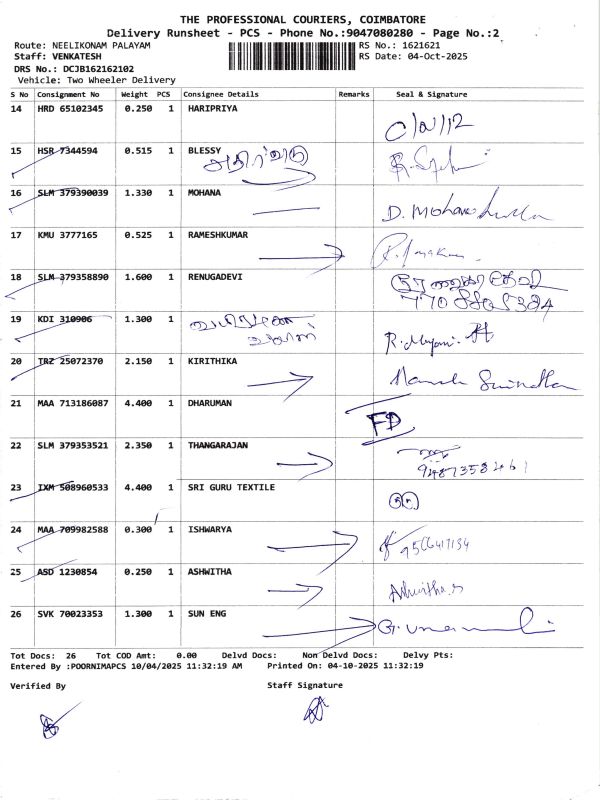 THE PROFESSIONAL COURIERS, COIMBATORE
Delivery Runsheet - PCS - Phone No.:9047080280 - Page No.:2
Route: NEELIKONAM PALAYAM RS No.: 1621621
Staff: VENKATESH RS Date: 04-Oct-2025
DRS No.: DCJB162162102
Vehicle: Two Wheeler Delivery
S No Consignment No Weight PCS Consignee Details Remarks Seal & Signature
14 HRD 65102345 0.250 1 HARIPRIYA
15 HSR 7344594 0.515 1 BLESSY
16 SLM 379390039 1.330 1 MOHANA D. Mohana
17 KMU 3777165 0.525 1 RAMESHKUMAR
18 SLM 379358890 1.600 1 RENUGADEVI
19 KDI 310906 1.300 1
20 TRZ 25072370 2.150 1 KIRITHIKA
21 MAA 713186087 4.400 1 DHARUMAN FD
22 SLM 379353521 2.350 1 THANGARAJAN
23 IXM 508960533 4.400 1 SRI GURU TEXTILE
24 MAA 709982588 0.300 1 ISHWARYA
25 ASD 1230854 0.250 1 ASHWITHA Ashwitha.s
26 SVK 70023353 1.300 1 SUN ENG
Tot Docs: 26 Tot COD Amt: 0.00 Delvd Docs: Non Delvd Docs: Delvy Pts:
Entered By :POORNIMAPCS 10/04/2025 11:32:19 AM Printed On: 04-10-2025 11:32:19
Verified By Staff Signature